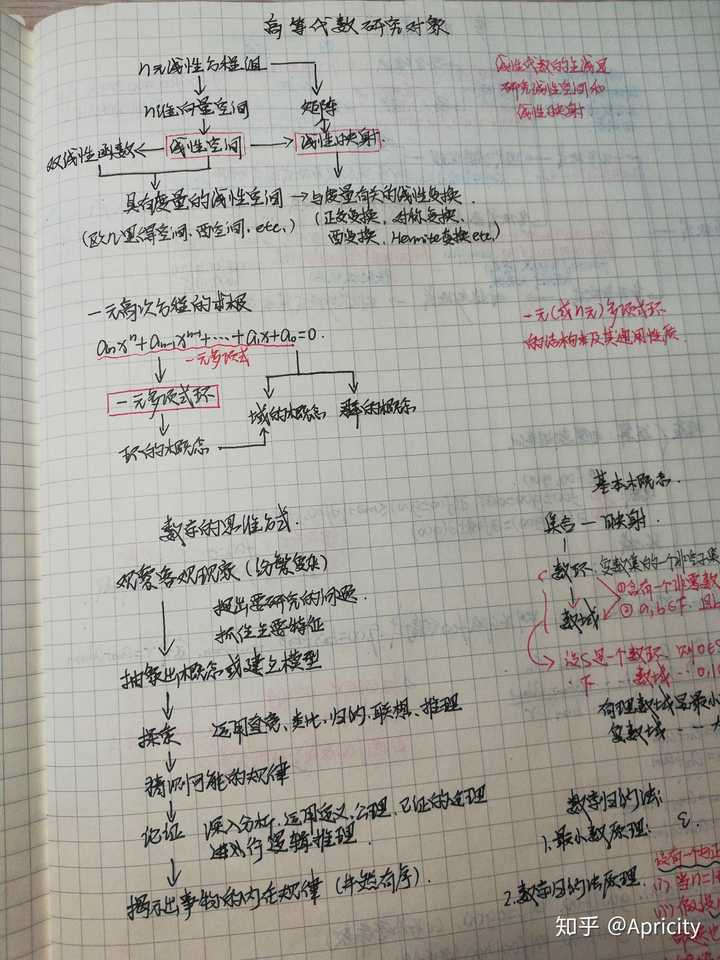 高等代数研究对象
n元线性方程组
矩阵
n维向量空间
双线性函数
线性空间
线性映射
具有度量的线性空间
与度量有关的线性变换
(欧几里得空间、酉空间, etc.)
(正交变换、对称变换、
酉变换、Hermite变换etc.)
线性代数的主线是
研究线性空间和
线性映射
一元高次方程的求根
aₙxⁿ+aₙ₋₁xⁿ⁻¹+…+a₁x+a₀=0.
一元多项式
一元多项式环
域的概念
群的概念
环的概念
一元(或n元)多项式环
的结构及其通用性质
数学的思维方式.
观察客观现象(纷繁复杂)
提出要研究的问题.
抓住主要特征
抽象出概念或建立模型
探索
运用直觉、类比、归纳、联想、推理
猜测可能的规律
论证
深入分析、运用定义、公理、已证的定理
进行逻辑推理.
揭示出事物的内在规律(井然有序).
基本概念.
集合 — 映射.
数环. 复数集的一个非空子集
①含有一个非零数
数域
② a,b∈F, 且
设S是一个数环. 则0∈S
F 数域 … 0,1
有理数域是最小
复数域 …
数学归纳法:
1.最小数原理:
2.数学归纳法原理.
设有一个与正
(i) 当n=1
(ii) 假设
知乎 @Apricity